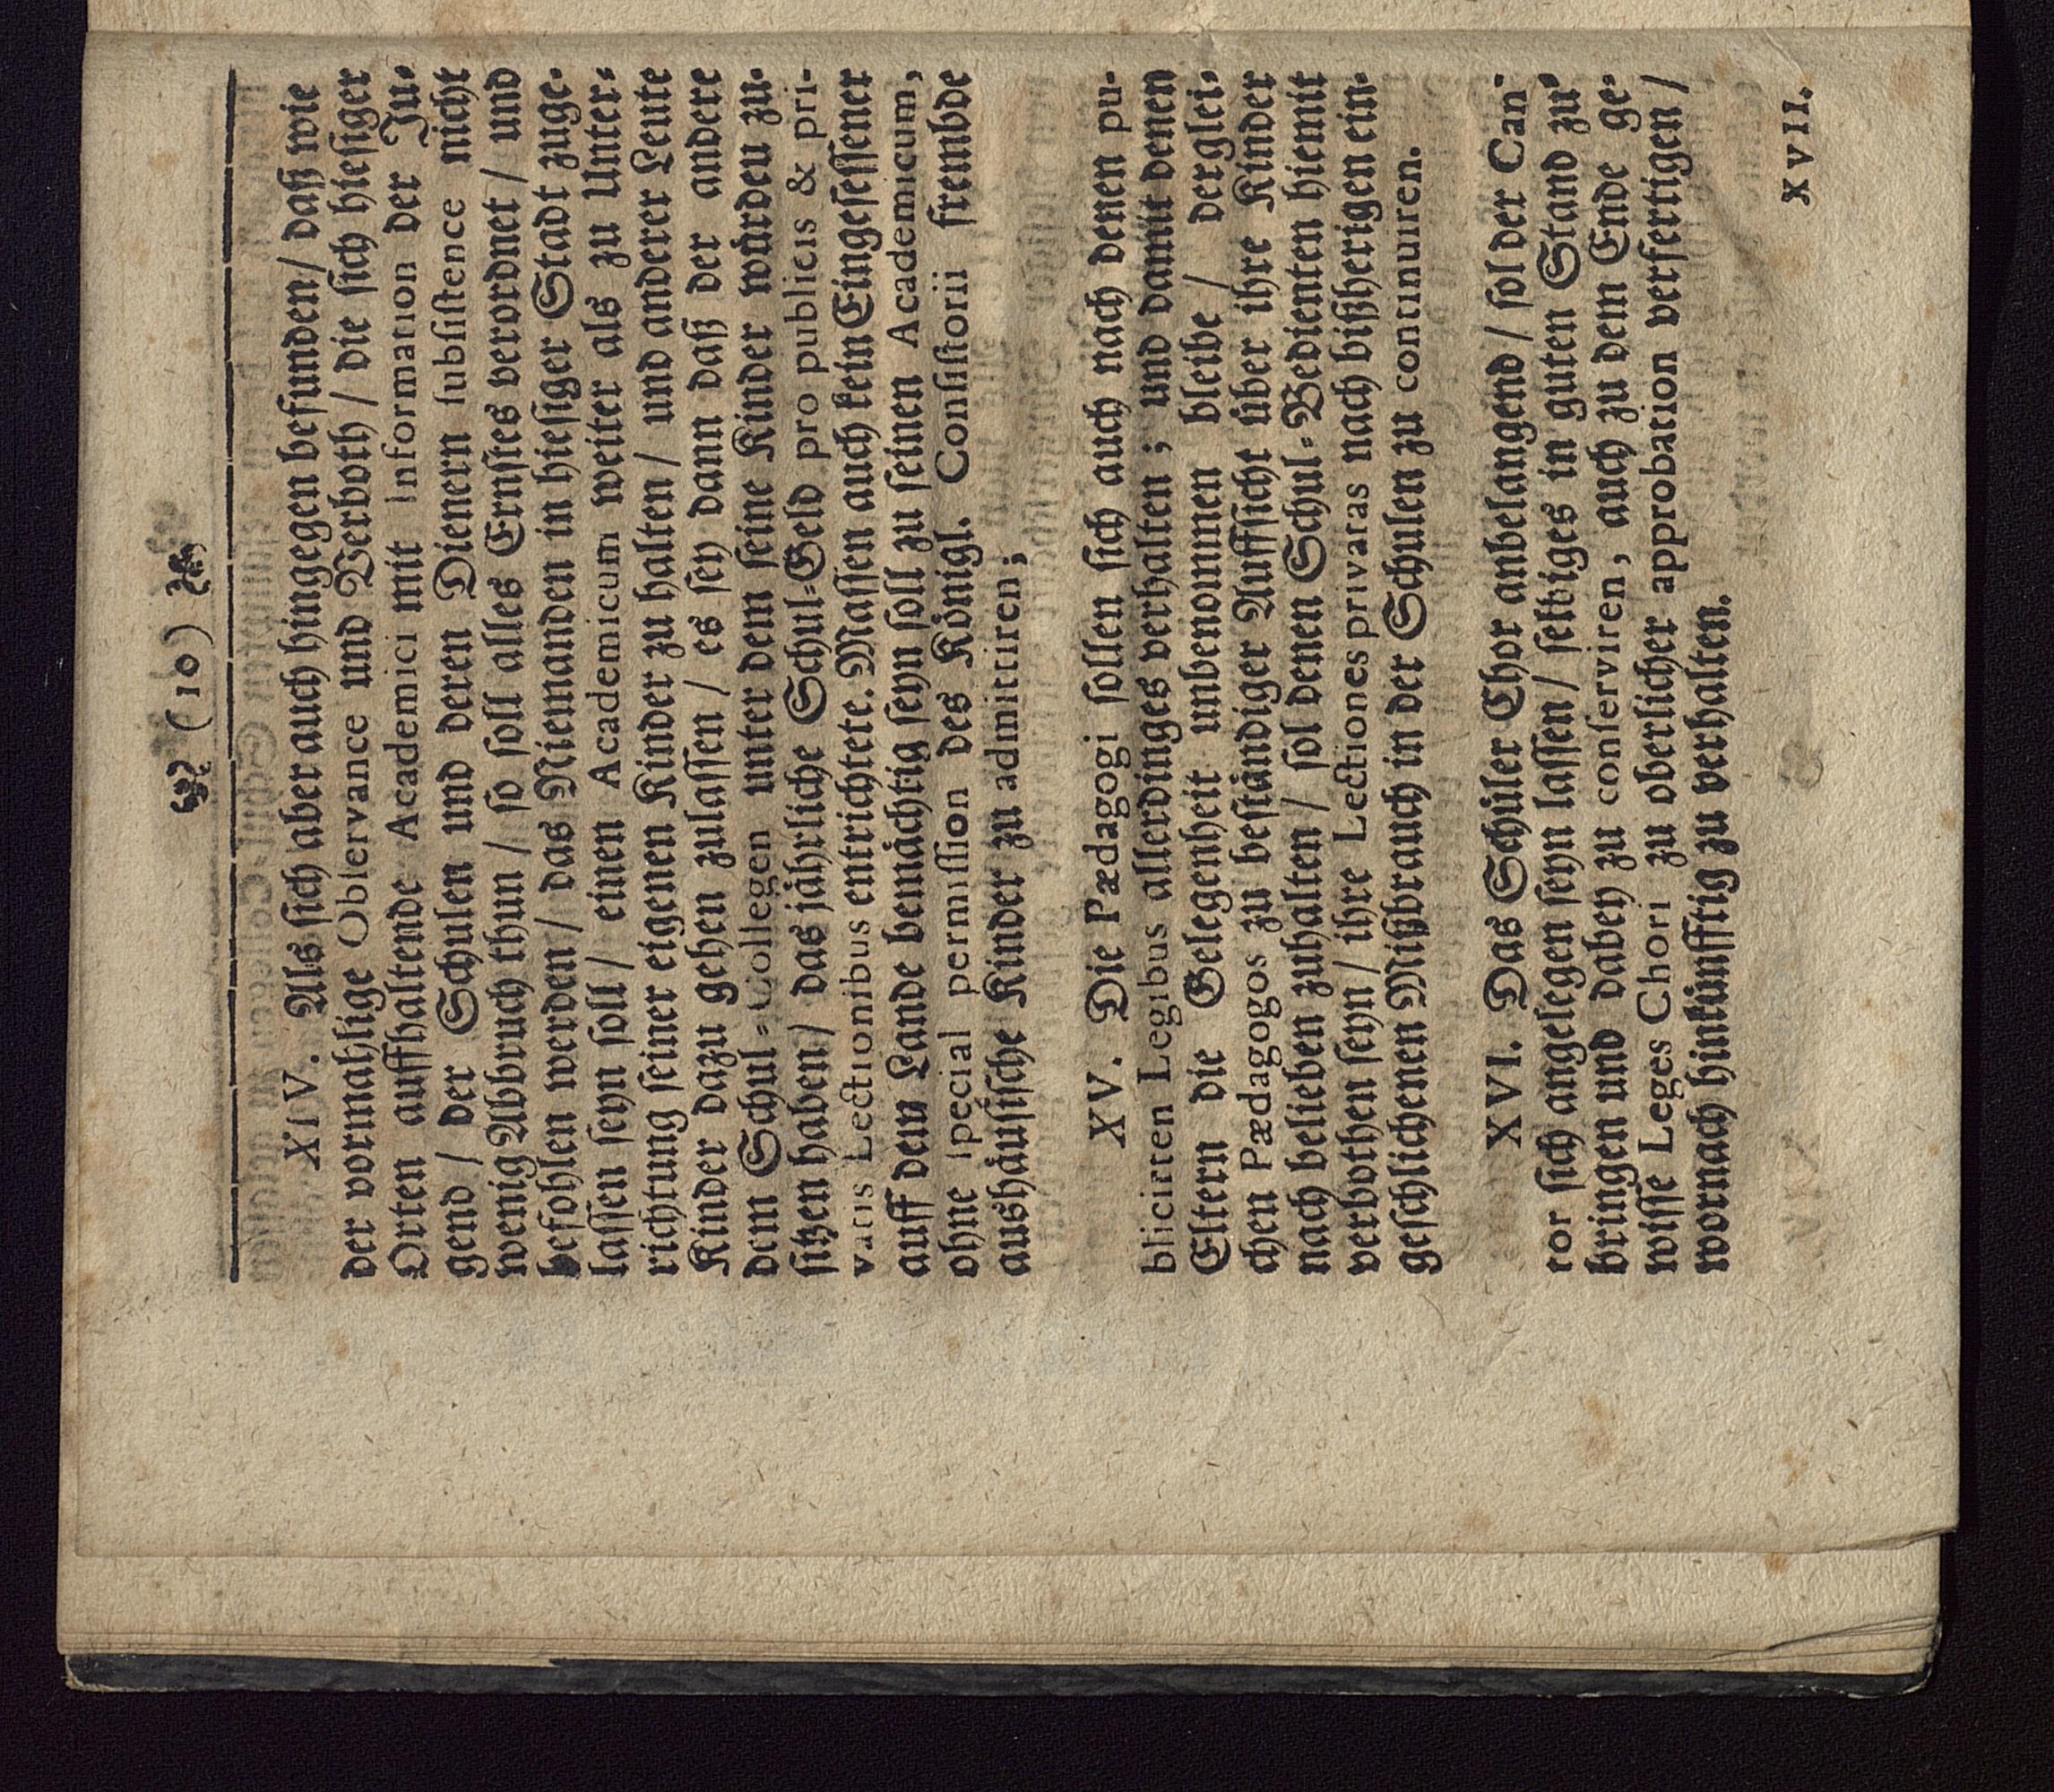 (10)
XIV. Als sich aber auch hingegen befunden/ daß wie
der vormahlige Observance und Verboth / die sich hiesiger
Orten auffhaltende Academici mit Information der Ju-
gend / der Schulen und deren Dienern subsistence nicht
wenig Abbruch thun / so soll alles Ernstes verordnet / und
befohlen werden / das Niemanden in hiesiger Stadt zuge-
lassen seyn soll / einen Academicum weiter als zu Unter-
richtung seiner eigenen Kinder zu halten / und anderer Leute
Kinder dazu gehen zulassen / es sey dann daß der andere
dem Schul-Collegen unter dem seine Kinder würden zu-
sitzen haben / das jährliche Schul-Geld pro publicis & pri-
vatis Lectionibus entrichtete. Massen auch kein Eingesessener
auff dem Lande bemächtig seyn soll zu seinen Academicum,
ohne special permission des Königl. Consistorii frembde
aushäusische Kinder zu admittiren;
XV. Die Pædagogi sollen sich auch nach denen pu-
blicirten Legibus allerdinges verhalten; und damit denen
Eltern die Gelegenheit umbenommen bleibe / derglei-
chen Pædagogos zu beständiger Auffsicht über ihre Kinder
nach belieben zuhalten / sol denen Schul-Bedienten hiemit
verbothen seyn / ihre Lectiones privatas nach bißherigen ein-
geschlichenen Mißbrauch in der Schulen zu continuiren.
XVI. Das Schüler Chor anbelangend / sol der Can-
tor sich angelegen seyn lassen / selbiges in guten Stand zu-
bringen und dabey zu conserviren, auch zu dem Ende ge-
wisse Leges Chori zu oberlicher approbation verfertigen /
wornach hinkünfftig zu verhalten.
XVII.